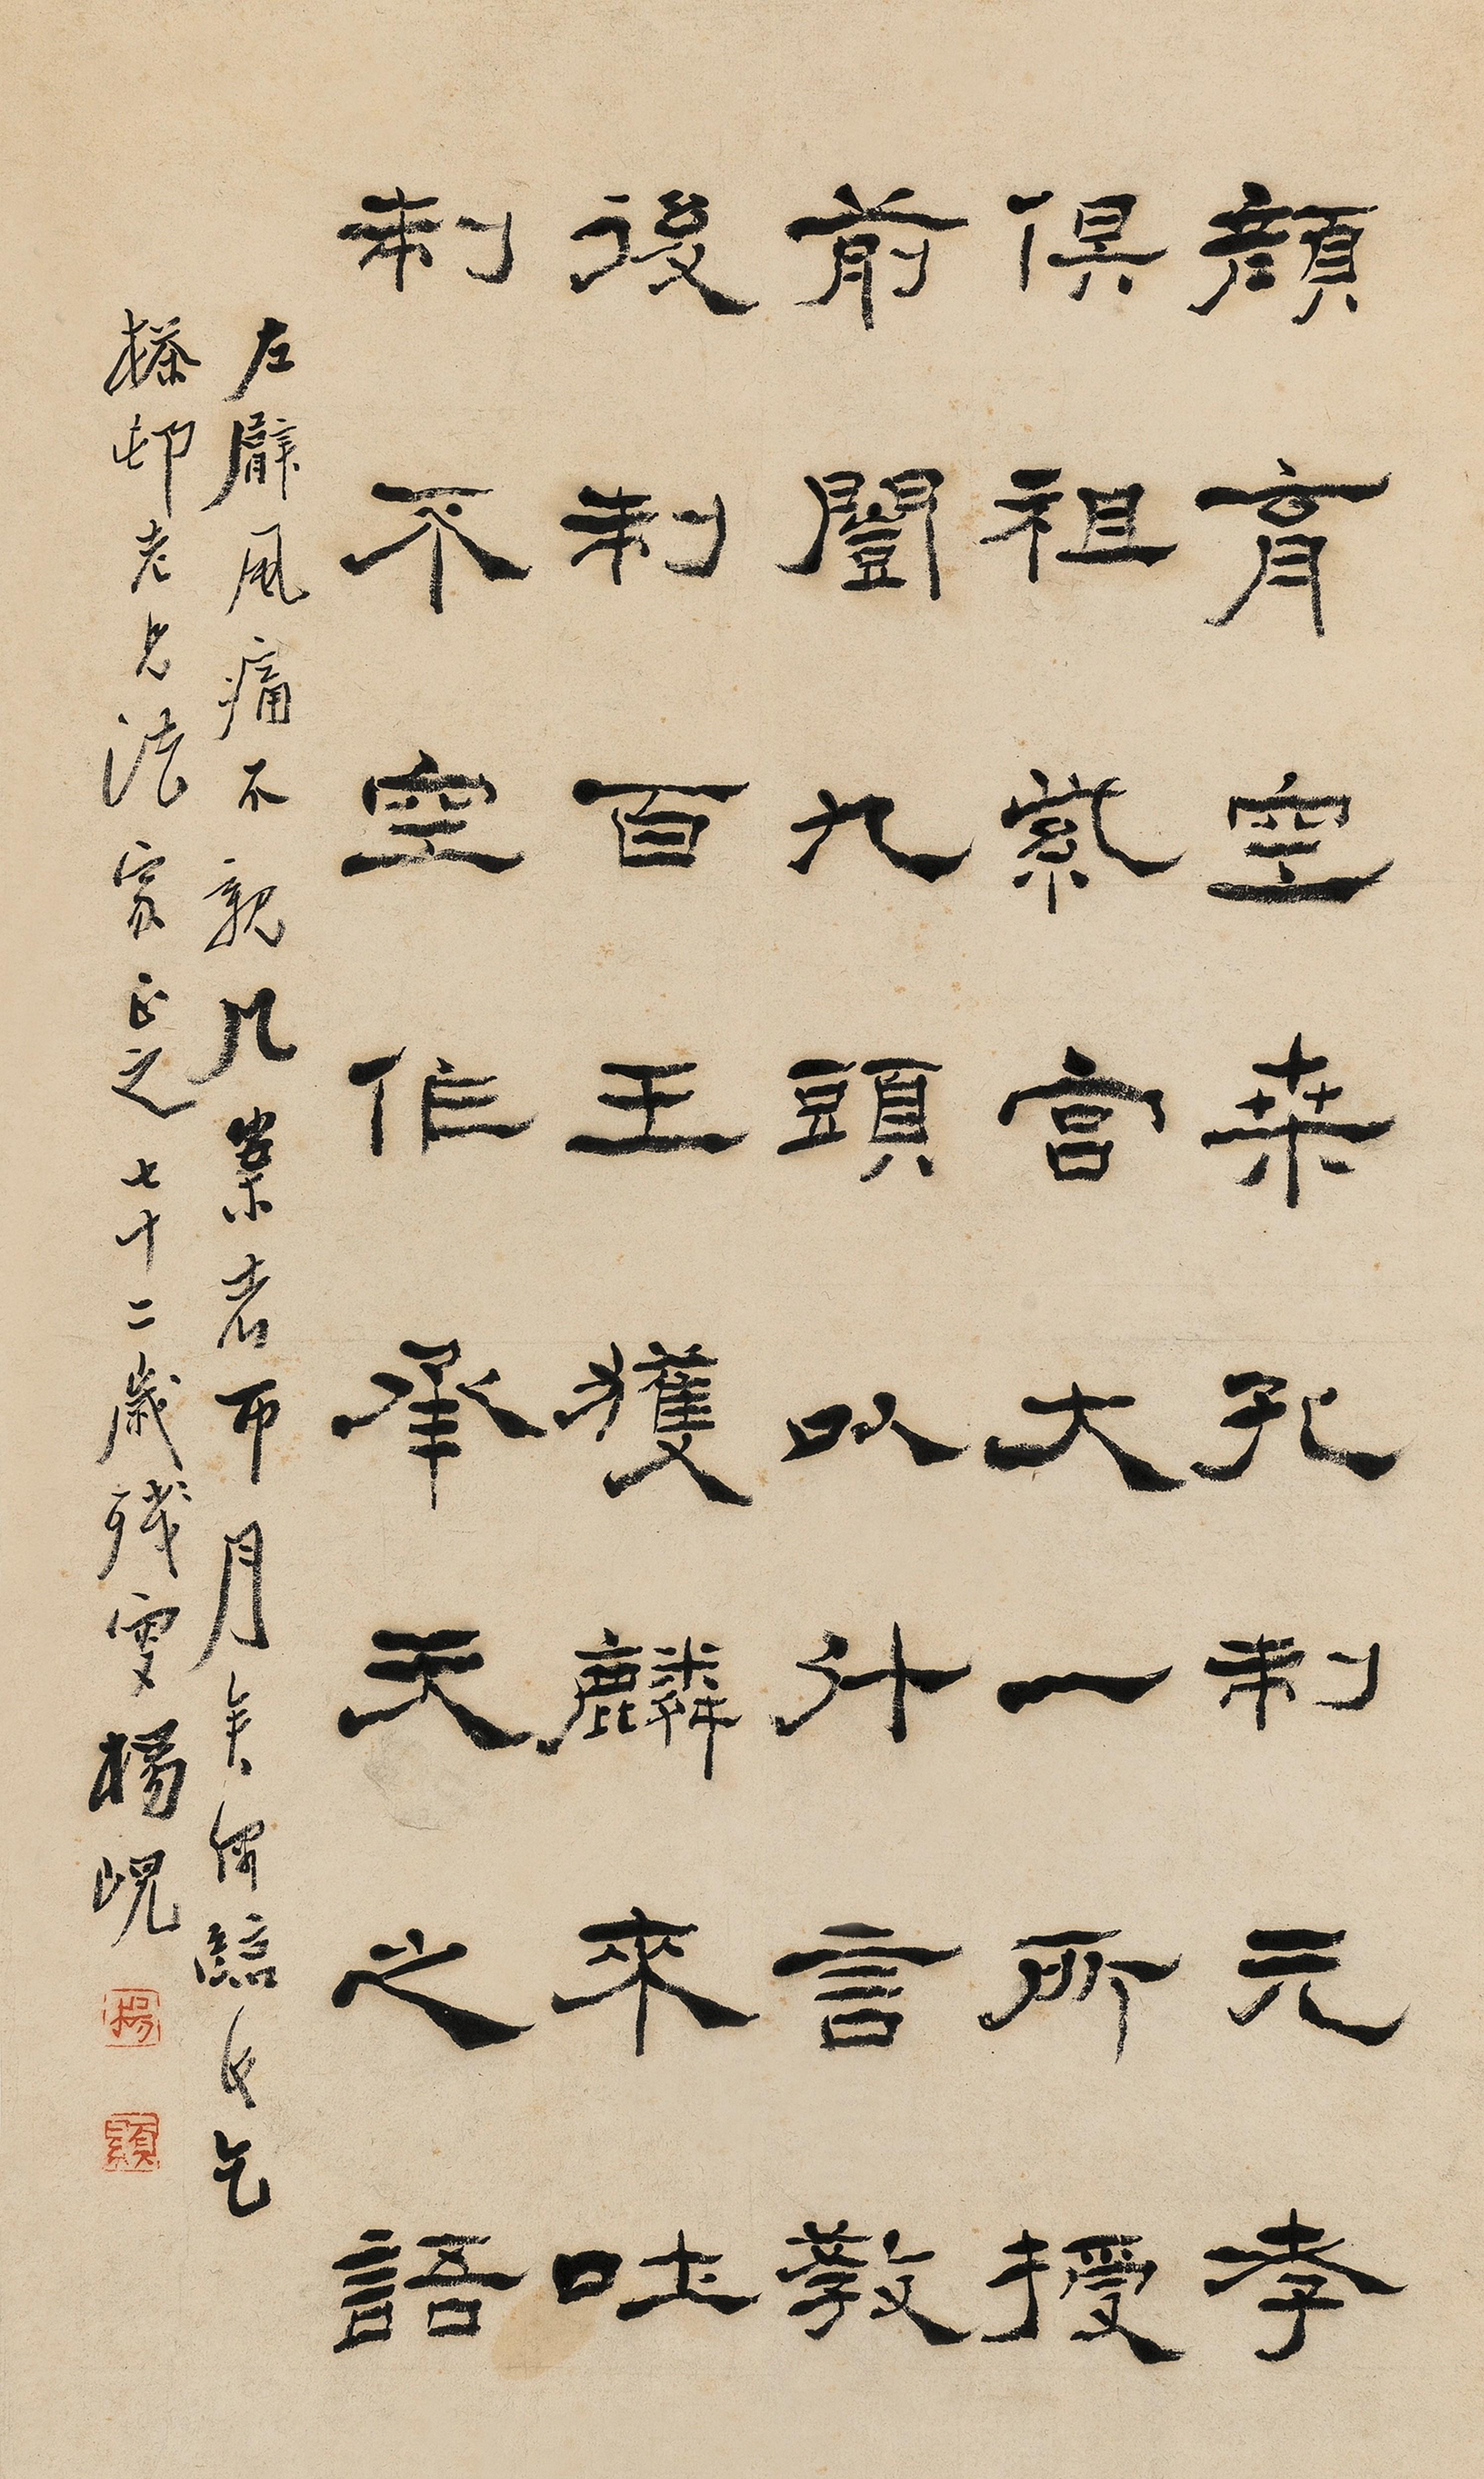 顏育空桑孔制元孝
俱祖紫宮大一所授
前闓九頭以什言教
後制百王獲麟來吐
制不空作承天之語
左臂風痛不親几案者帀月矣偶臨此乞
邨老兄法家正之七十二歲殘叟楊峴
楊
顯